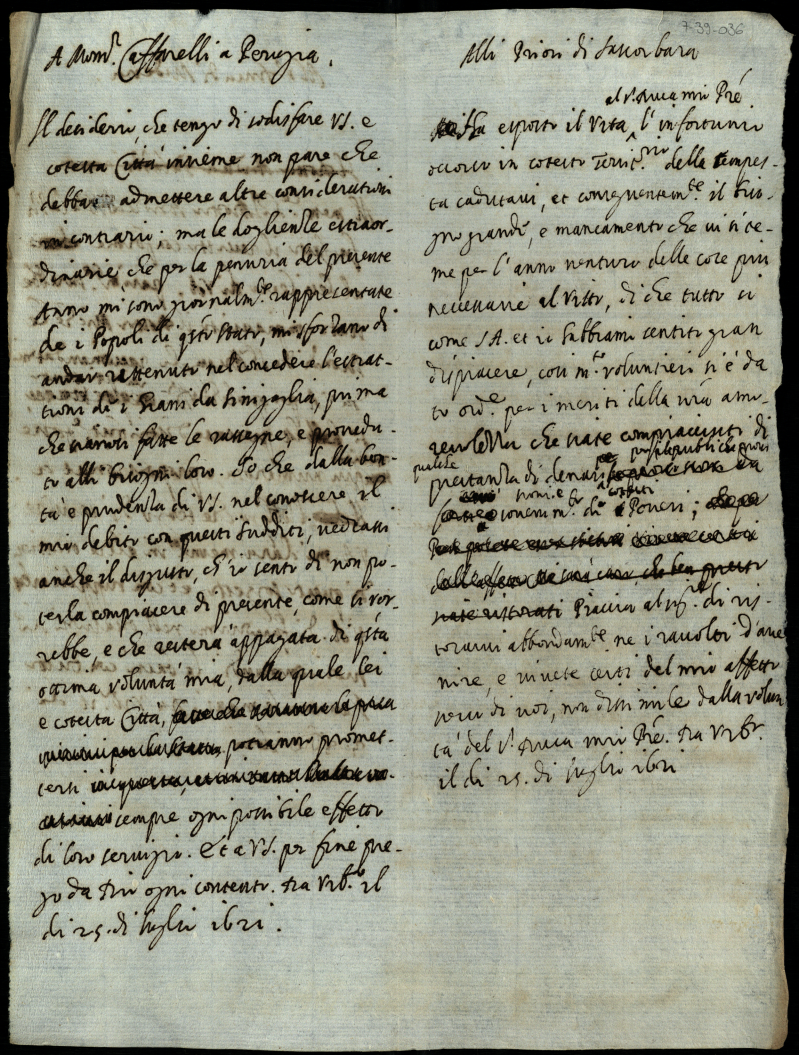 7-39-036
A Mons.r Caffarelli a Perugia.
Il desiderio, che tengo di sodisfare VS. e
cotesta Città insieme non pare che
debba admettere altre considerationi
in contrario; ma le doglienze estraor-
dinarie che per la penuria del presente
Anno mi sono giornalm.te rappresentate
da i Popoli di q.sto stato, mi sforzano di
andar rattenuto nel concedere l'estrat-
tioni di i grani da Sinigaglia, prima
che siansi fatte le rassegne, e provedu-
to alli bisogni loro. So che dalla bon-
tà e prudenza di VS. nel conoscere il
mio debito con questi sudditi, vedrassi
anche il disgusto, ch'io sento di non po-
terla compiacere di presente, come si vor-
rebbe, e che resterà appagata di q.sta
ottima voluntà mia, dalla quale lei
e cotesta Città,
potranno promet-
tersi
sempre ogni possibile effetto
di loro servizio. Et a VS. per fine pre-
go da Dio ogni contento. Da Urb.o il
di 25. di luglio 1621.
Alli Priori di Sascorbaro
al S.r Duca mio Pre.
Ha esposto il Vita, l'infortunio
occorso in cotesto Territ.rio della tempes-
ta cadutavi, et conseguentem.te il biso-
gno grande, e mancamento che vi si te-
me per l'anno venturo delle cose più
necessarie al vitto, di che tutto si
come SA. et io habbiamo sentito gran
dispiacere, così m.to voluntieri si è da
to ord.e per i meriti della vra amo-
revolezza che siate compiaciuti di
qualche
prestanza di denari
di Poveri;
Piaccia al Sig.re di ris-
torarvi abbondam.te ne i raccolti d'ave
nire, e vivete certi del mio affetto
verso di voi, non dissimile dalla volun
tà del S.r Duca mio Pre. Da Urb.o
il di 25. di luglio 1621